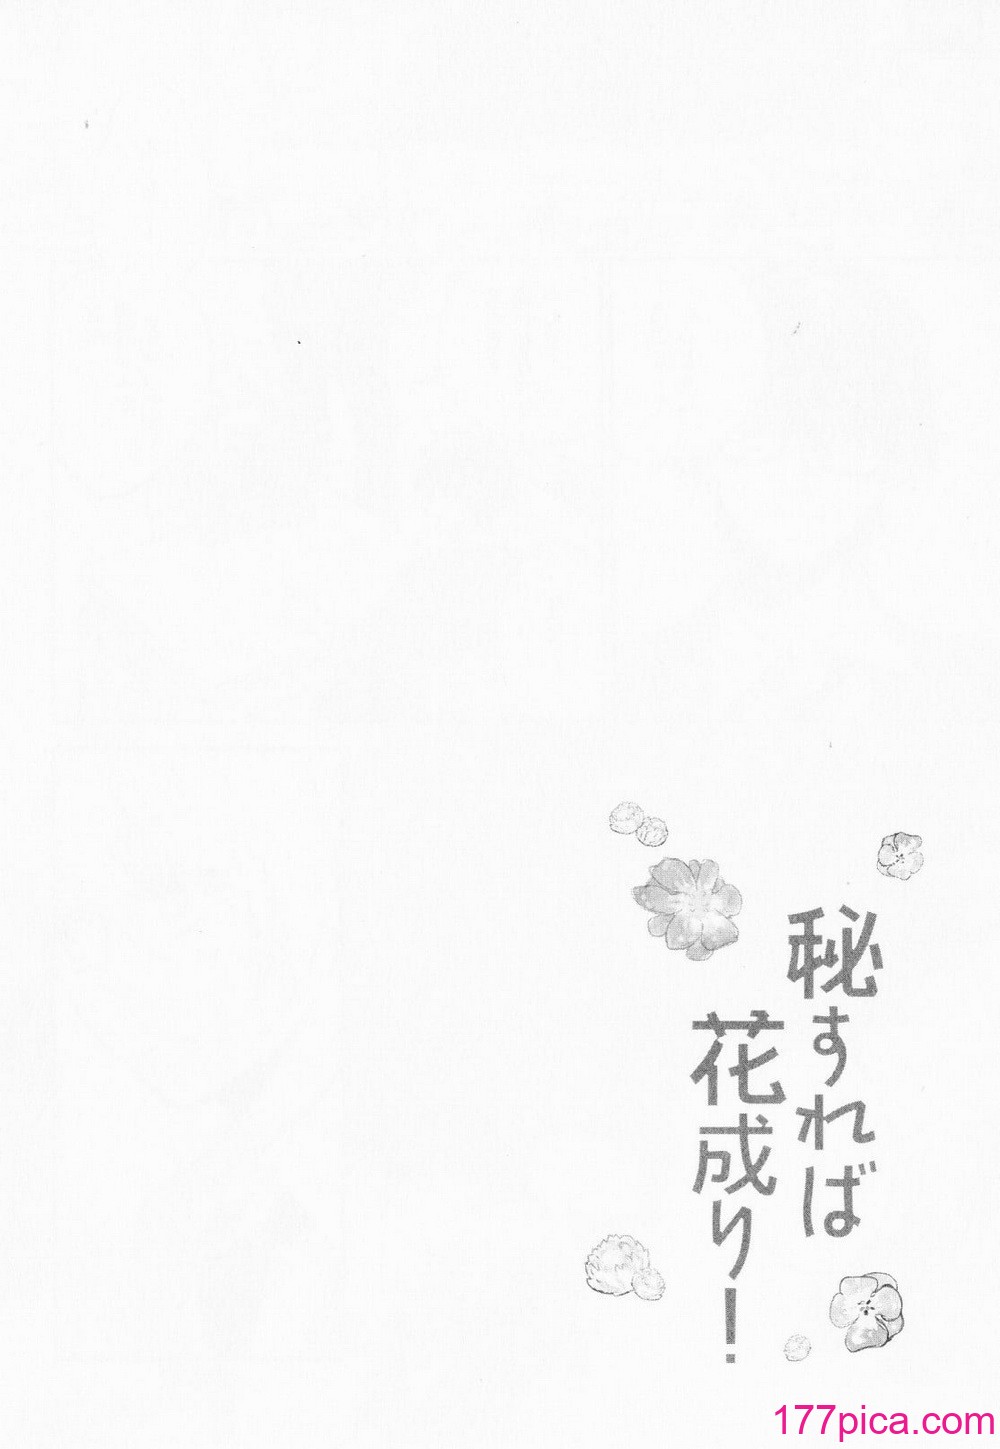 秘すれば
花成り!
177pica.com